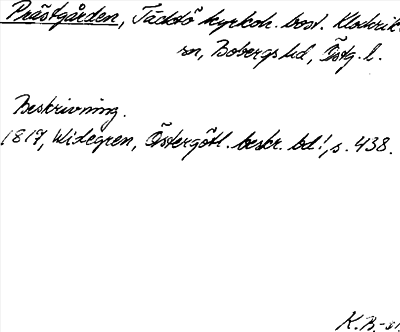 Prästgården, Täddö kyrkoh. bost. Klockrik
sn, Bobergs hd, Östg. l.
Beskrivning.
1817, Widegren, Östergötl. beskr. bd 1, s. 438.
K.B.-81